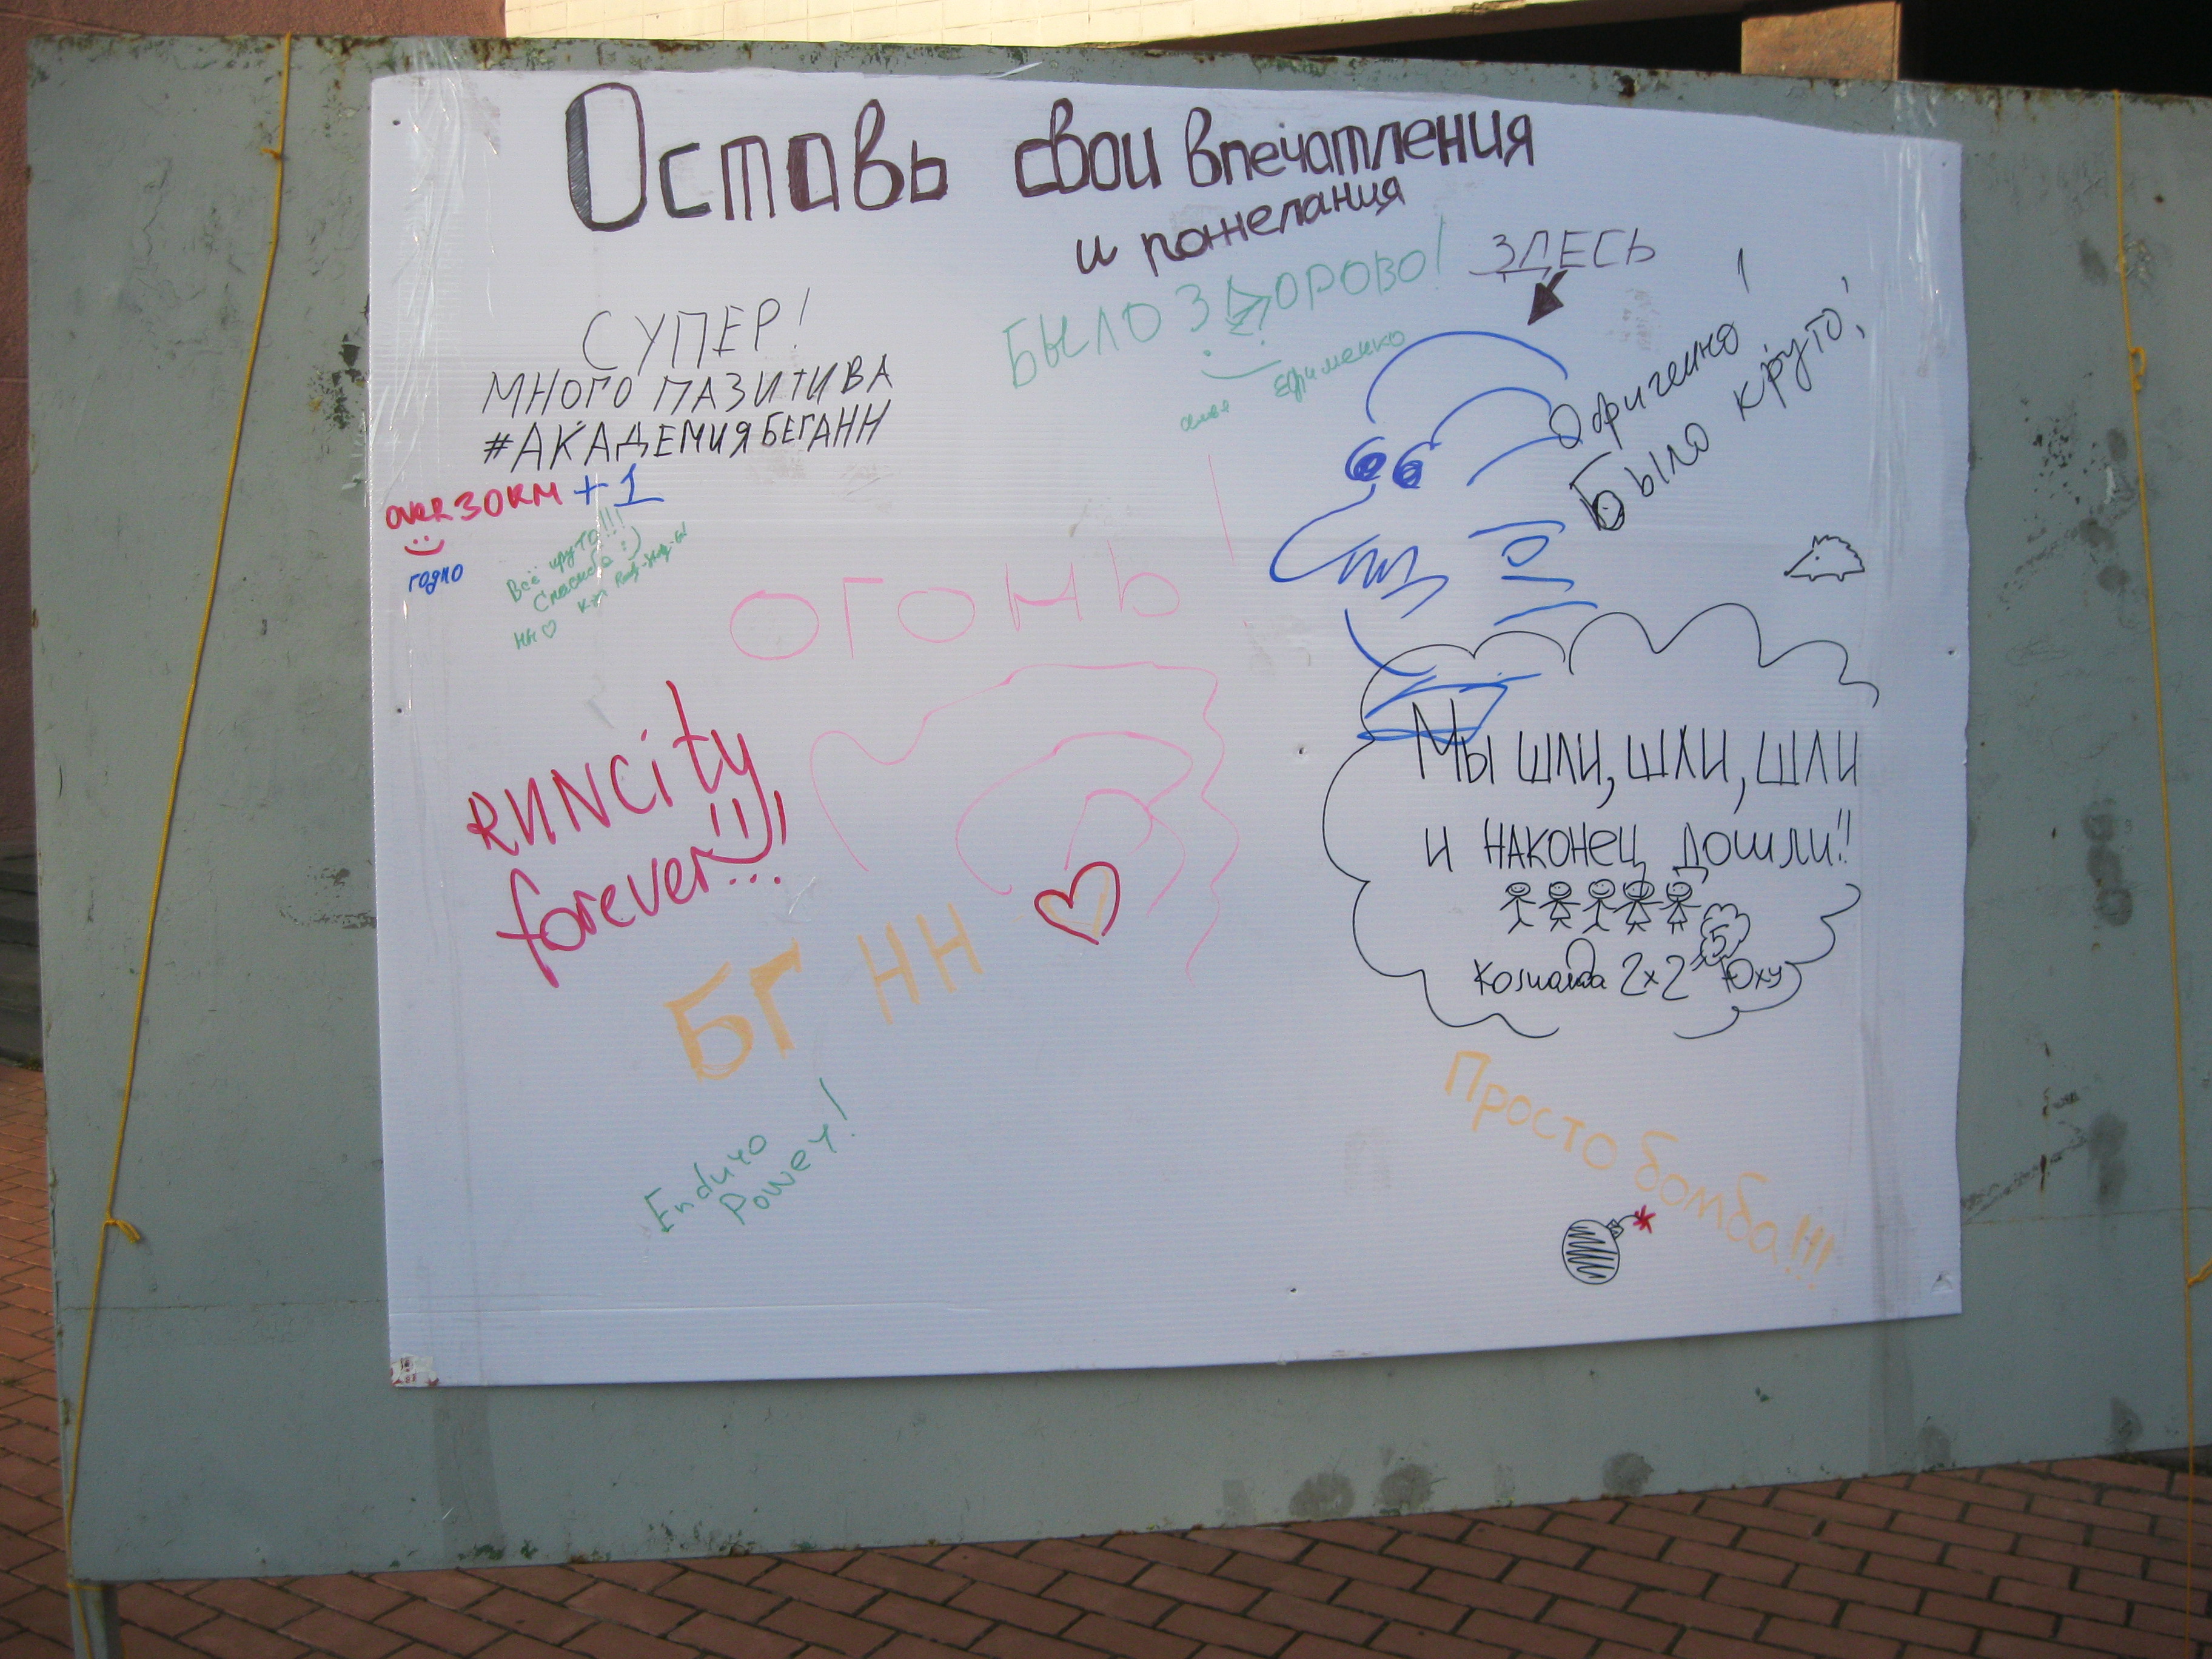 Оставь свои впечатления
и пожелания
ЗДЕСЬ
БЫЛО ЗДОРОВО!
семья Ефименко
СУПЕР!
МНОГО ПАЗИТИВА
#АКАДЕМИЯБЕГАНН
Офигенно!
Было круто!
over 30KM +1
годно
Всё круто!!!
Спасибо :)
НН♡
ОГОНЬ!
RUNCity
forever
Мы шли, шли, шли
и НАКОНЕЦ ДОШЛИ!!
Команда 2х2=5 Юху
БГ НН
Просто бомба!!!
Enduro
Power!